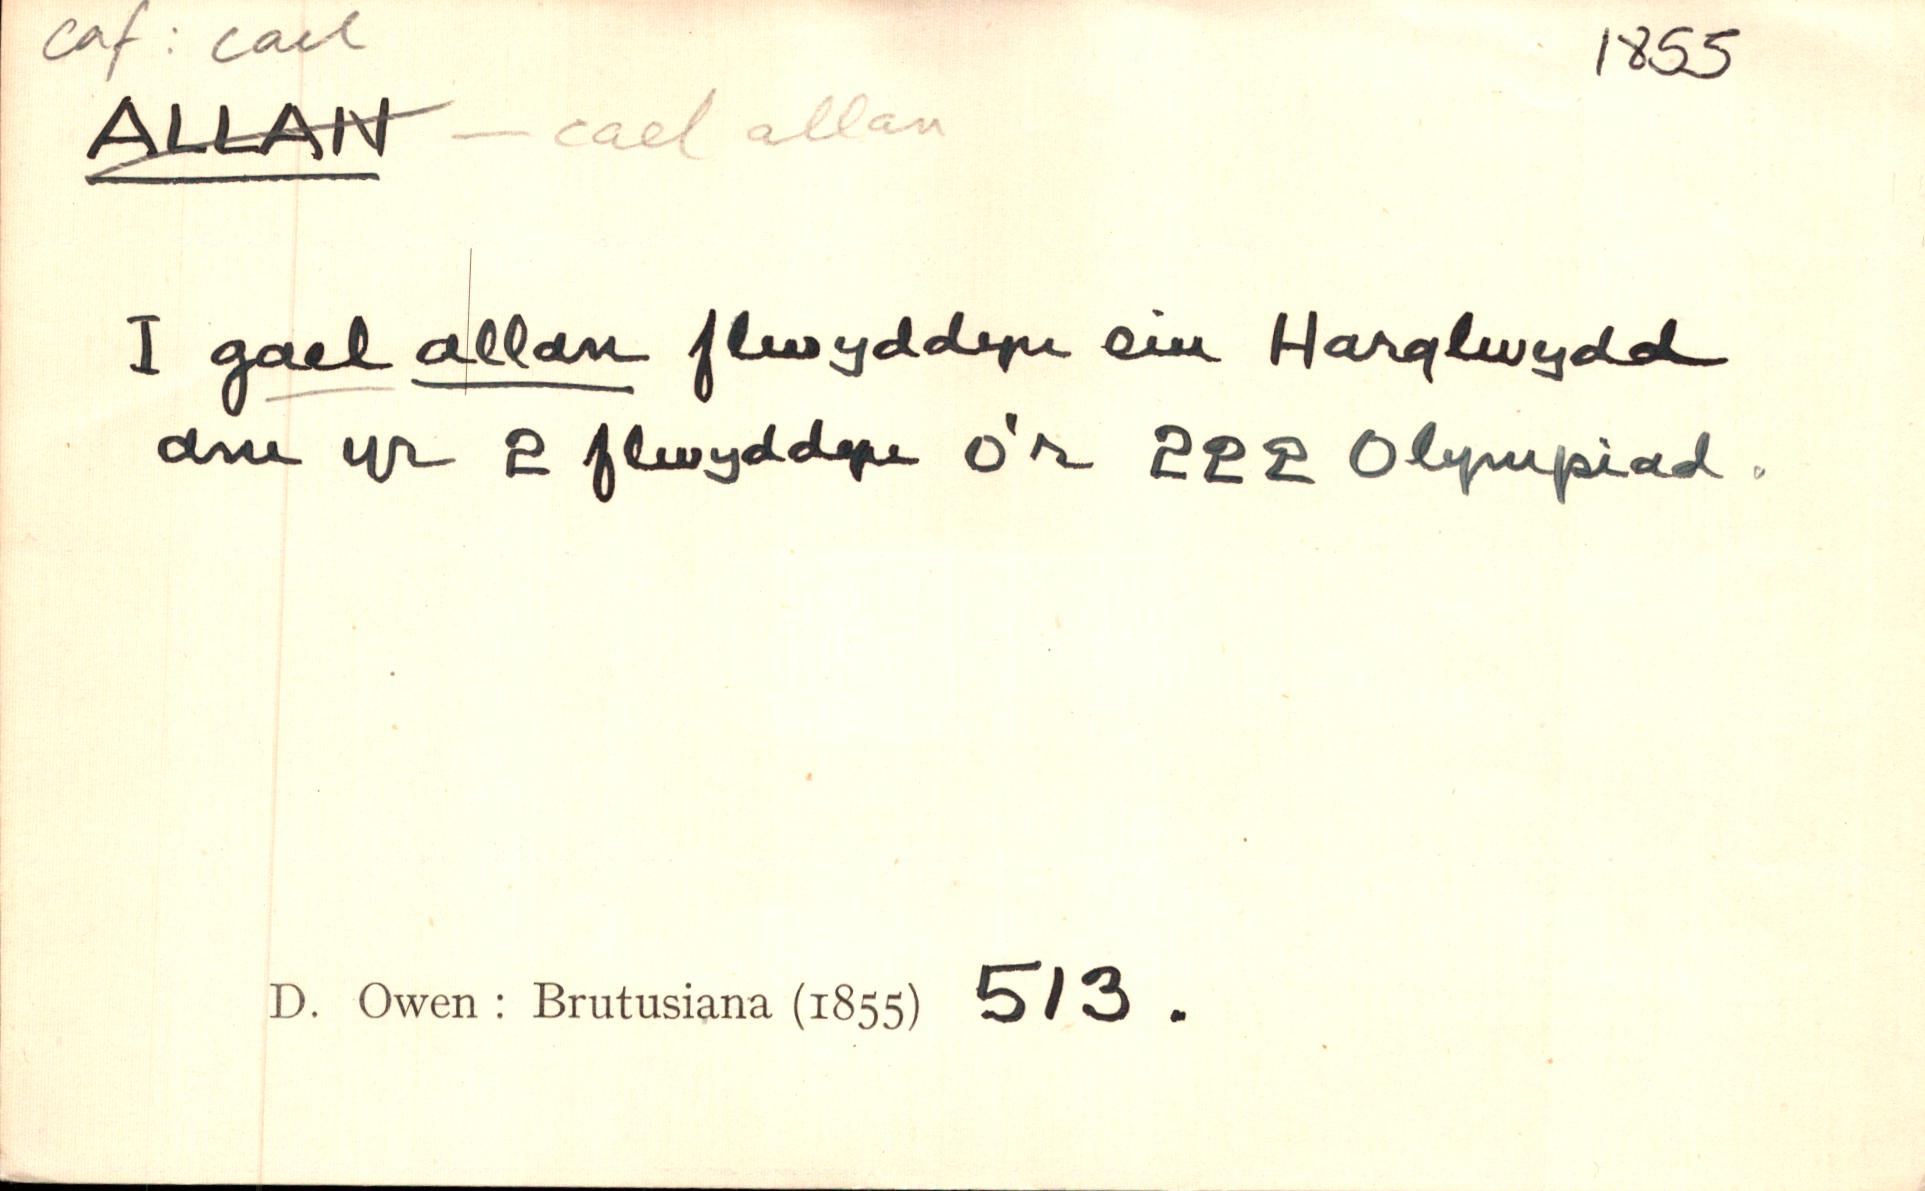 caf : cael
1855
ALLAN — cael allan
I gael allan flwyddyn ein Harglwydd
am yr 2 flwyddyn o'r 222 Olympiad.
D. Owen : Brutusiana (1855) 513.